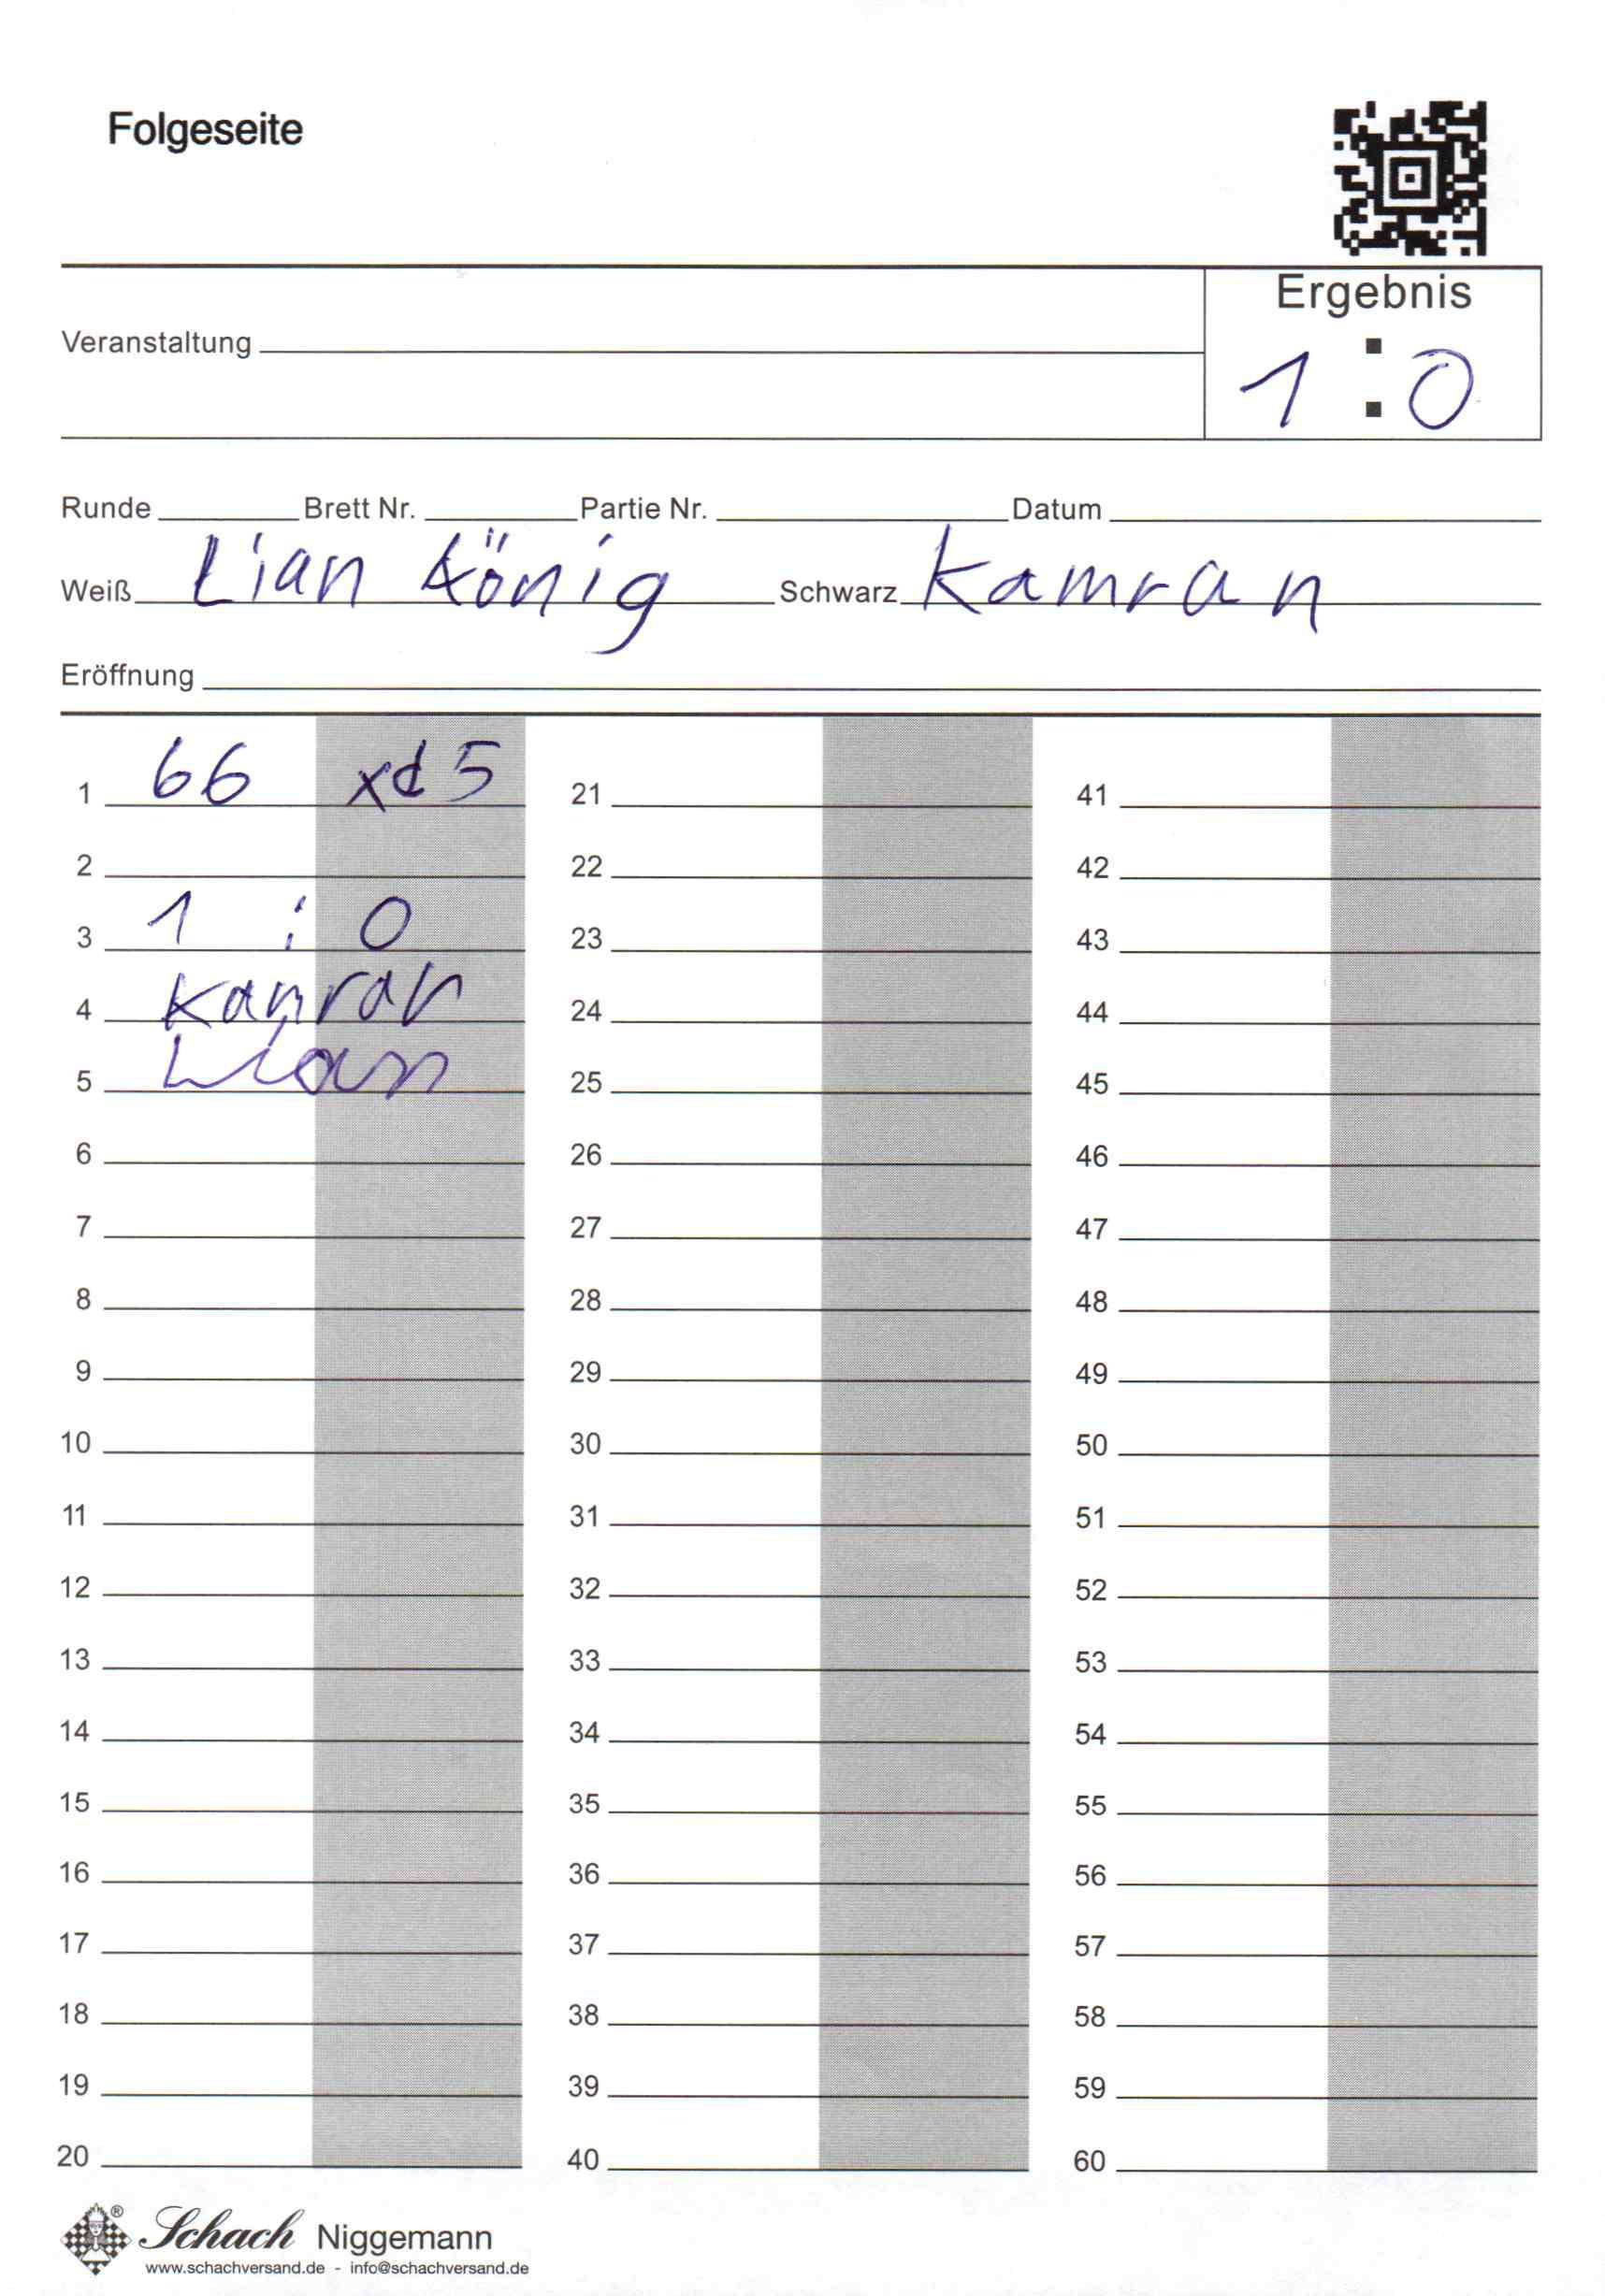 Folgeseite
Ergebnis
Veranstaltung
1 : 0
Runde Brett Nr. Partie Nr. Datum
Weiß Lian König Schwarz Kamran
Eröffnung
1 66 xd5 21 41
2 22 42
3 1 : 0 23 43
4 Kamran 24 44
5 Lian 25 45
6 26 46
7 27 47
8 28 48
9 29 49
10 30 50
11 31 51
12 32 52
13 33 53
14 34 54
15 35 55
16 36 56
17 37 57
18 38 58
19 39 59
20 40 60
Schach Niggemann
www.schachversand.de - info@schachversand.de